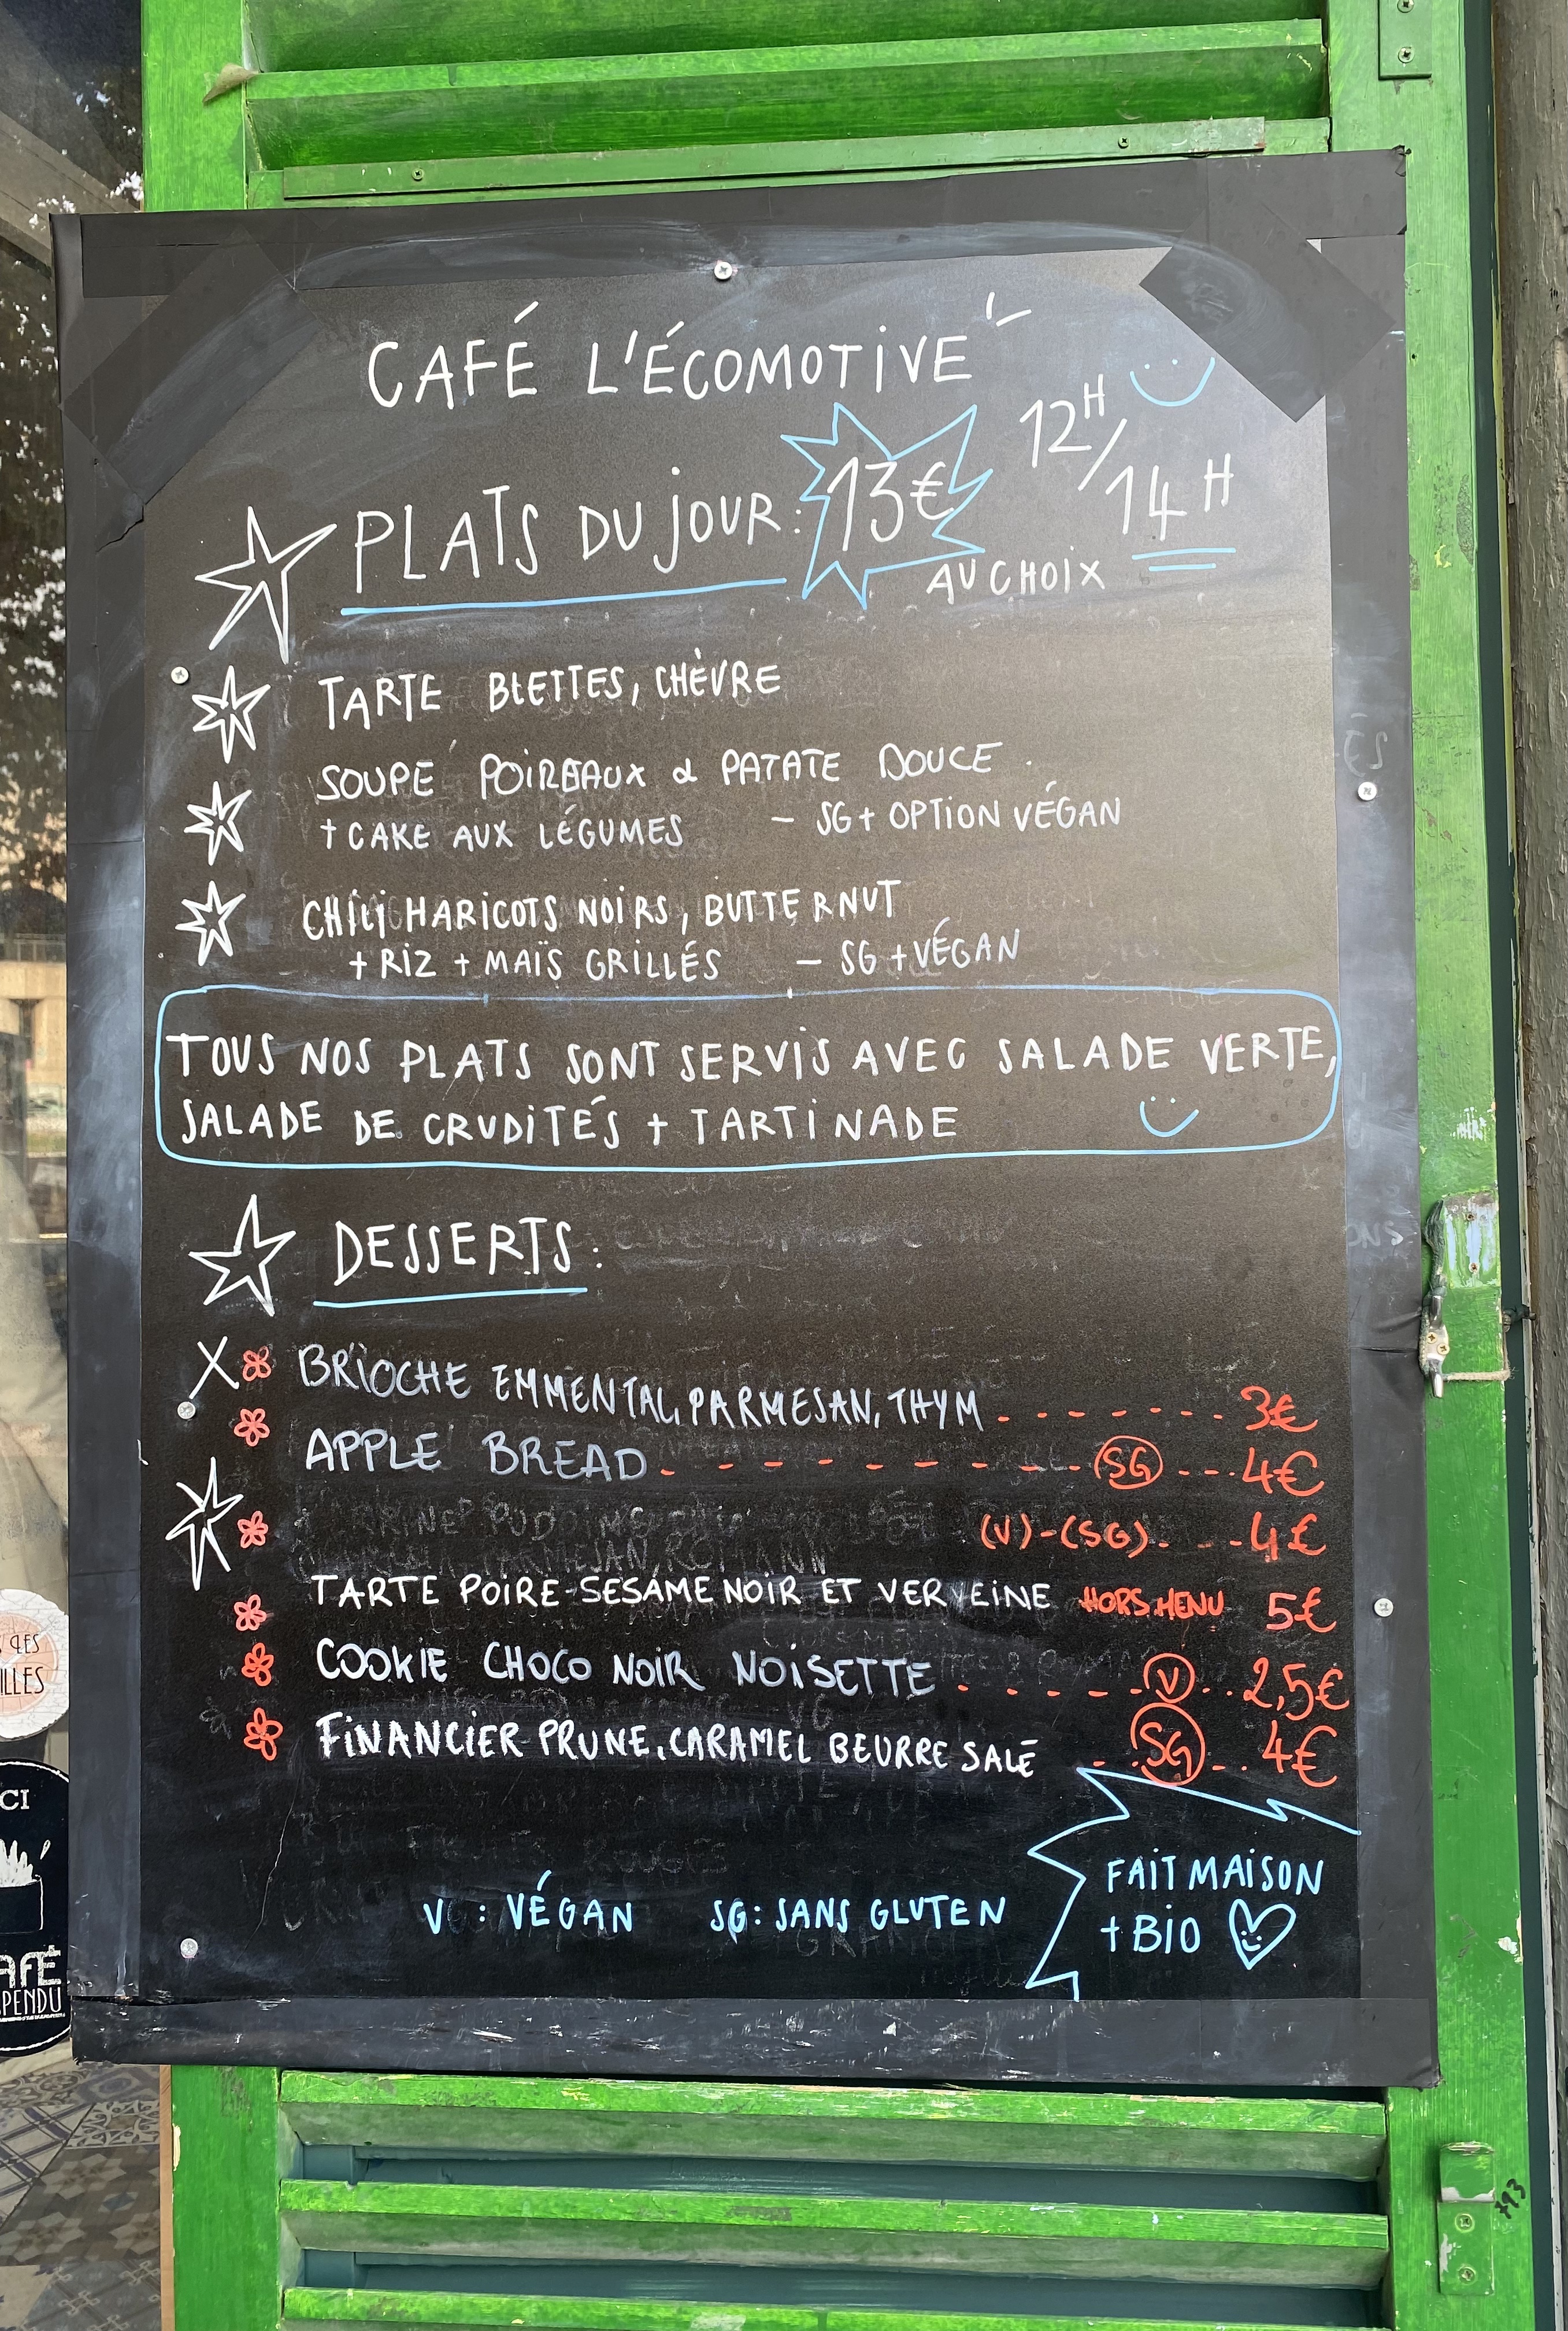 CAFÉ L'ÉCOMOTIVE
12H/14H
PLATS DU JOUR: 13€
AU CHOIX
TARTE BLETTES, CHÈVRE
SOUPE POIREAUX & PATATE DOUCE.
+ CAKE AUX LÉGUMES - SG + OPTION VÉGAN
CHILI HARICOTS NOIRS, BUTTERNUT
+ RIZ + MAÏS GRILLÉS - SG + VÉGAN
TOUS NOS PLATS SONT SERVIS AVEC SALADE VERTE,
SALADE DE CRUDITÉS + TARTINADE
DESSERTS:
BRIOCHE EMMENTAL, PARMESAN, THYM - - - - - - - 3€
APPLE BREAD - - - - - - - - - SG - - - 4€
(V)-(SG). - - 4€
TARTE POIRE-SESAME NOIR ET VERVEINE HORS MENU 5€
COOKIE CHOCO NOIR NOISETTE . - - - - V . . 2,5€
FINANCIER PRUNE, CARAMEL BEURRE SALÉ . - SG - . . 4€
V : VÉGAN SG: SANS GLUTEN
FAIT MAISON
+ BIO
793